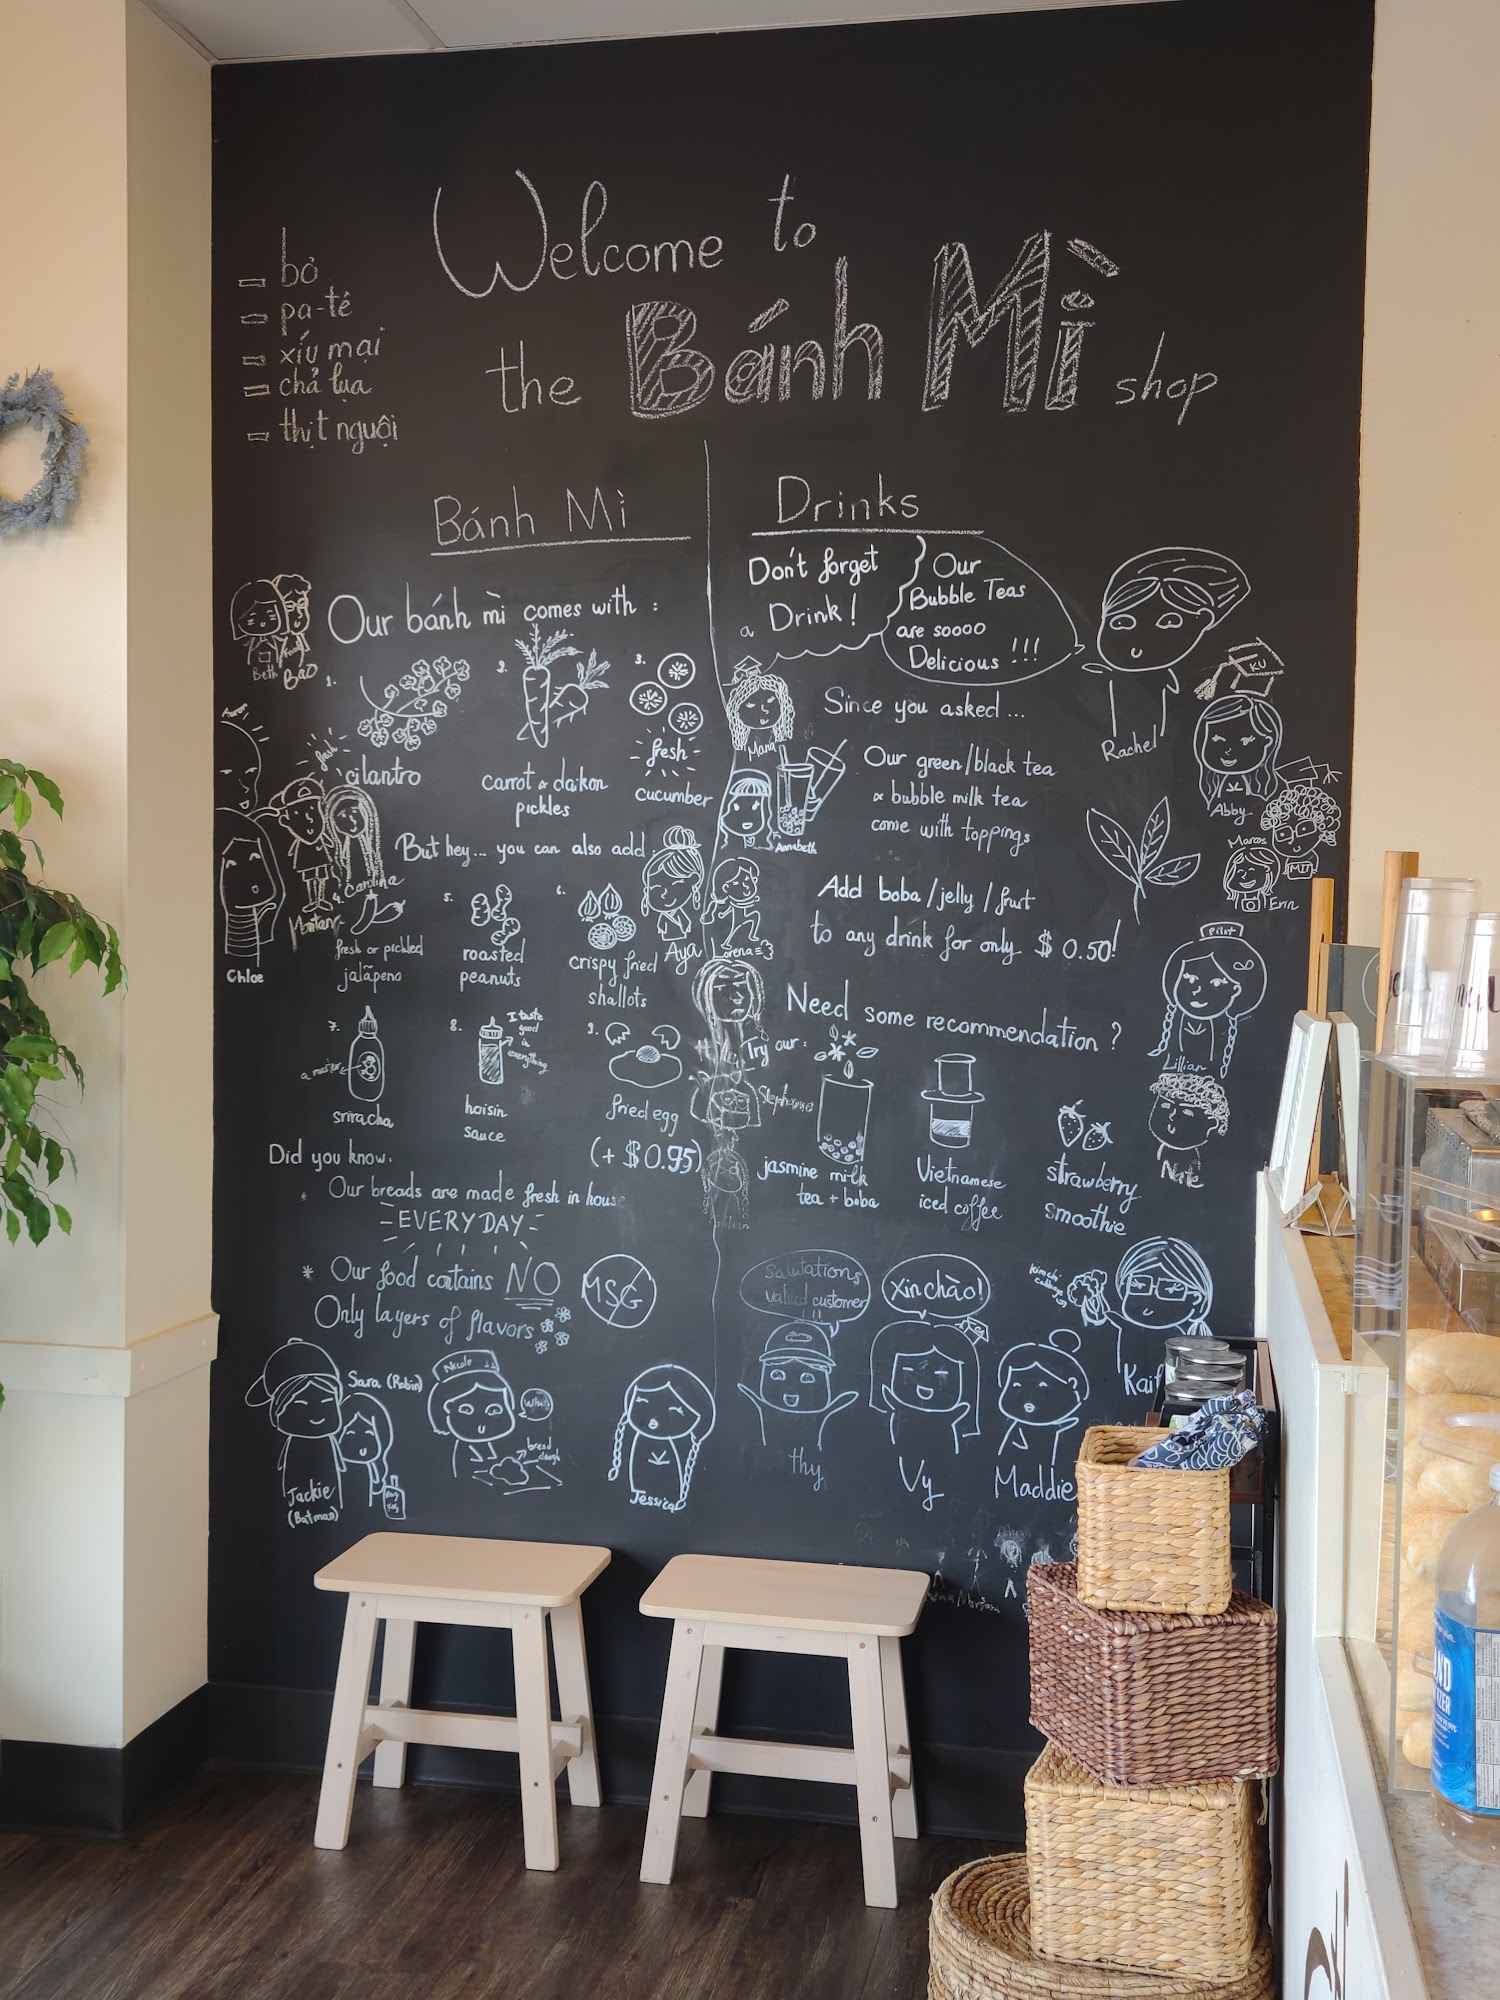 Welcome to
the Bánh Mì shop
bỏ
pa-tê
xíu mại
chả lụa
thịt nguội
Bánh Mì
Our bánh mì comes with :
Beth
Bao
1.
fresh
cilantro
2.
carrot & daikon
pickles
3.
fresh
cucumber
But hey... you can also add
Carolina
Chloe
4.
fresh or pickled
jalapeno
5.
roasted
peanuts
6.
crispy fried
shallots
Aya
7.
sriracha
8.
I taste
good
in
everything
hoisin
sauce
9.
fried egg
(+ $0.95)
Did you know:
Our breads are made fresh in house
EVERYDAY
* Our food contains NO
MSG
Only layers of flavors
Jackie
(Batman)
Sara (Robin)
Nicole
bread
dough
Jessica
Drinks
Don't forget
a Drink!
Our
Bubble Teas
are soooo
Delicious !!!
Rachel
Mana
Since you asked...
KU
Abby
Annabeth
Our green/black tea
& bubble milk tea
come with toppings
Marcos
MIT
Erin
Lorena
Add boba/jelly/fruit
to any drink for only $0.50!
Pilot
Lillian
Need some recommendation?
Try our:
jasmine milk
tea + boba
Vietnamese
iced coffee
strawberry
smoothie
Nate
Salutations
valued customer
!!!
thy
xin chào!
Vy
Maddie
Kait